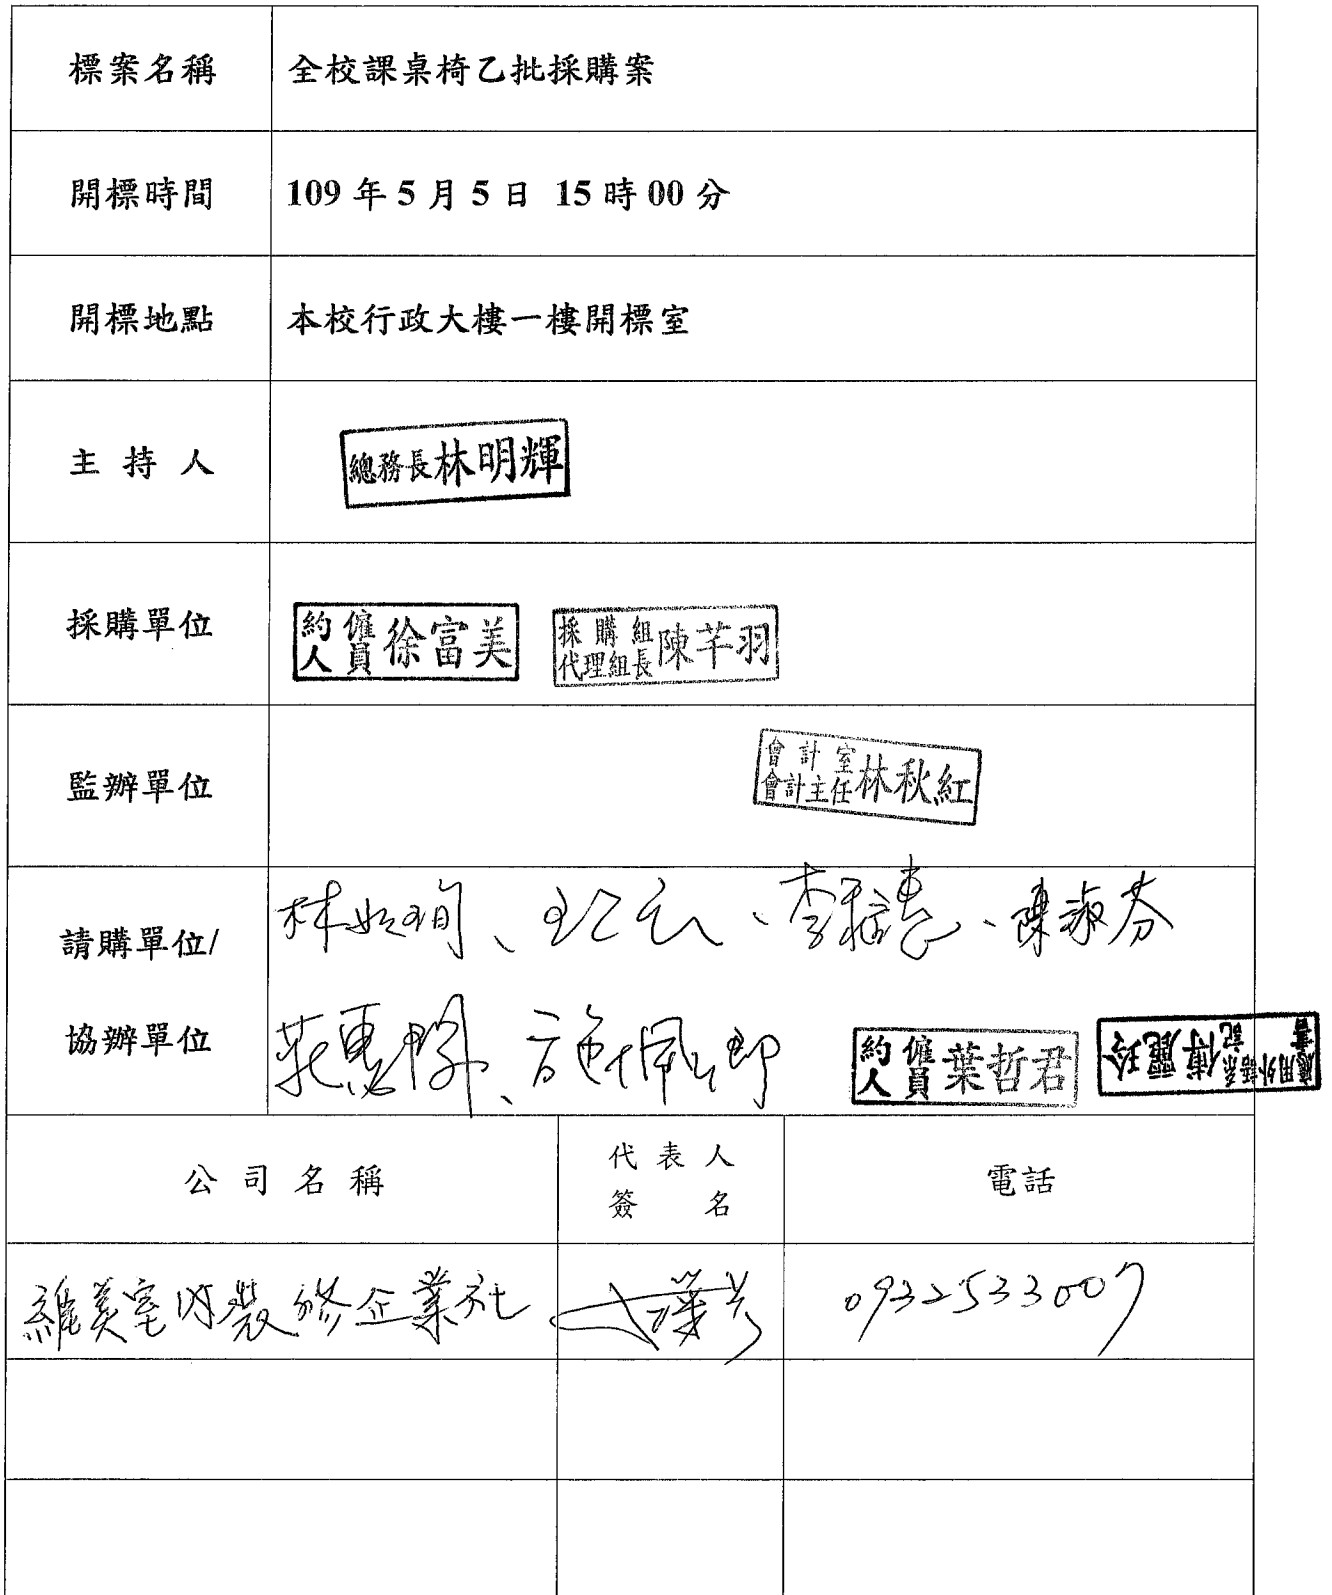 標案名稱 全校課桌椅乙批採購案
開標時間 109 年 5 月 5 日 15 時 00 分
開標地點 本校行政大樓一樓開標室
主持人 總務長林明輝
採購單位 約僱人員徐富美 採購組代理組長陳芊羽
監辦單位 會計室會計主任林秋紅
請購單位/ 陳淑芬
協辦單位 約僱人員葉哲君 應用外語系書記傅麗玲
公司名稱 代表人簽名 電話
維美室內裝修企業社 0932533007